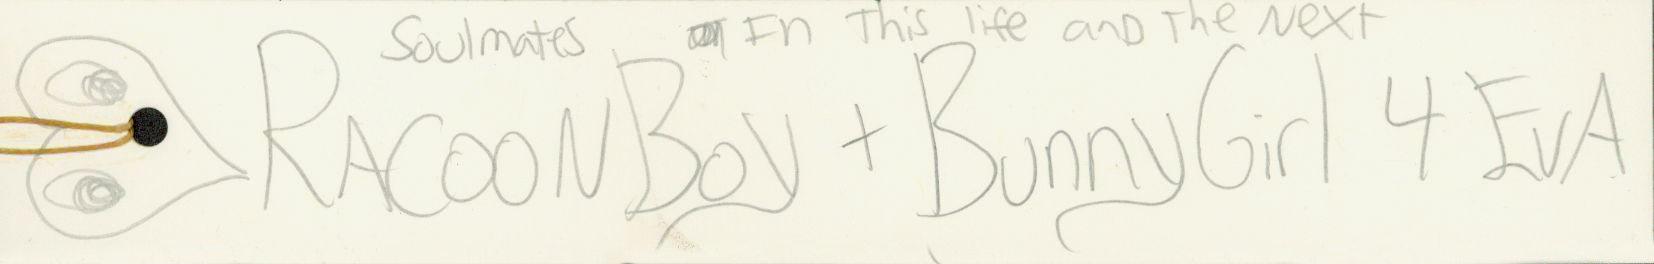 Soulmates In This life and The Next
RACOONBoy + BunnyGirl 4 EvA